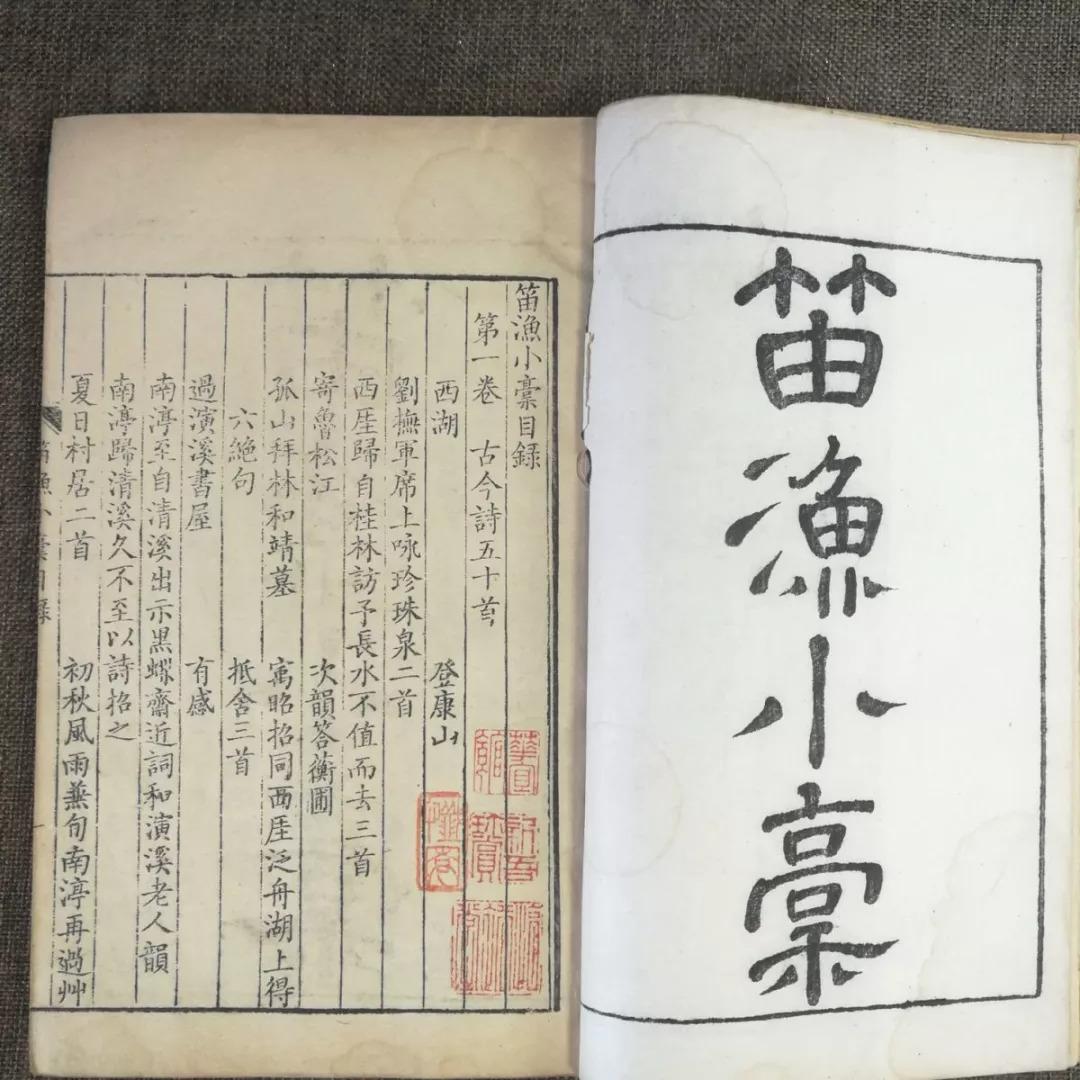 笛漁小稾
笛漁小稾目録
第一卷　古今詩五十首
西湖　登康山
劉撫軍席上咏珍珠泉二首
西厓歸自桂林訪予長水不值而去三首
寄魯松江　次韻答蘅圃
孤山拜林和靖墓　寓昭招同西厓泛舟湖上得
六絶句　抵舍三首
過演溪書屋　有感
南渟至自清溪出示黒蝶齋近詞和演溪老人韻
南渟歸清溪久不至以詩招之
夏日村居二首　初秋風雨蒹旬南渟再過艸